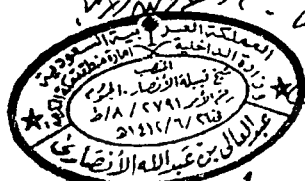 المملكة العربية السعودية
وزارة الداخلية
إمارة منطقة مكة المكرمة
المنصب
شيخ قبيلة الأنصار
رقم الأمر ٢٧٩١ / ٨ / ط
في ٢ / ٦ / ١٤١٢هـ
عبدالعالي بن عبدالله الأنصاري